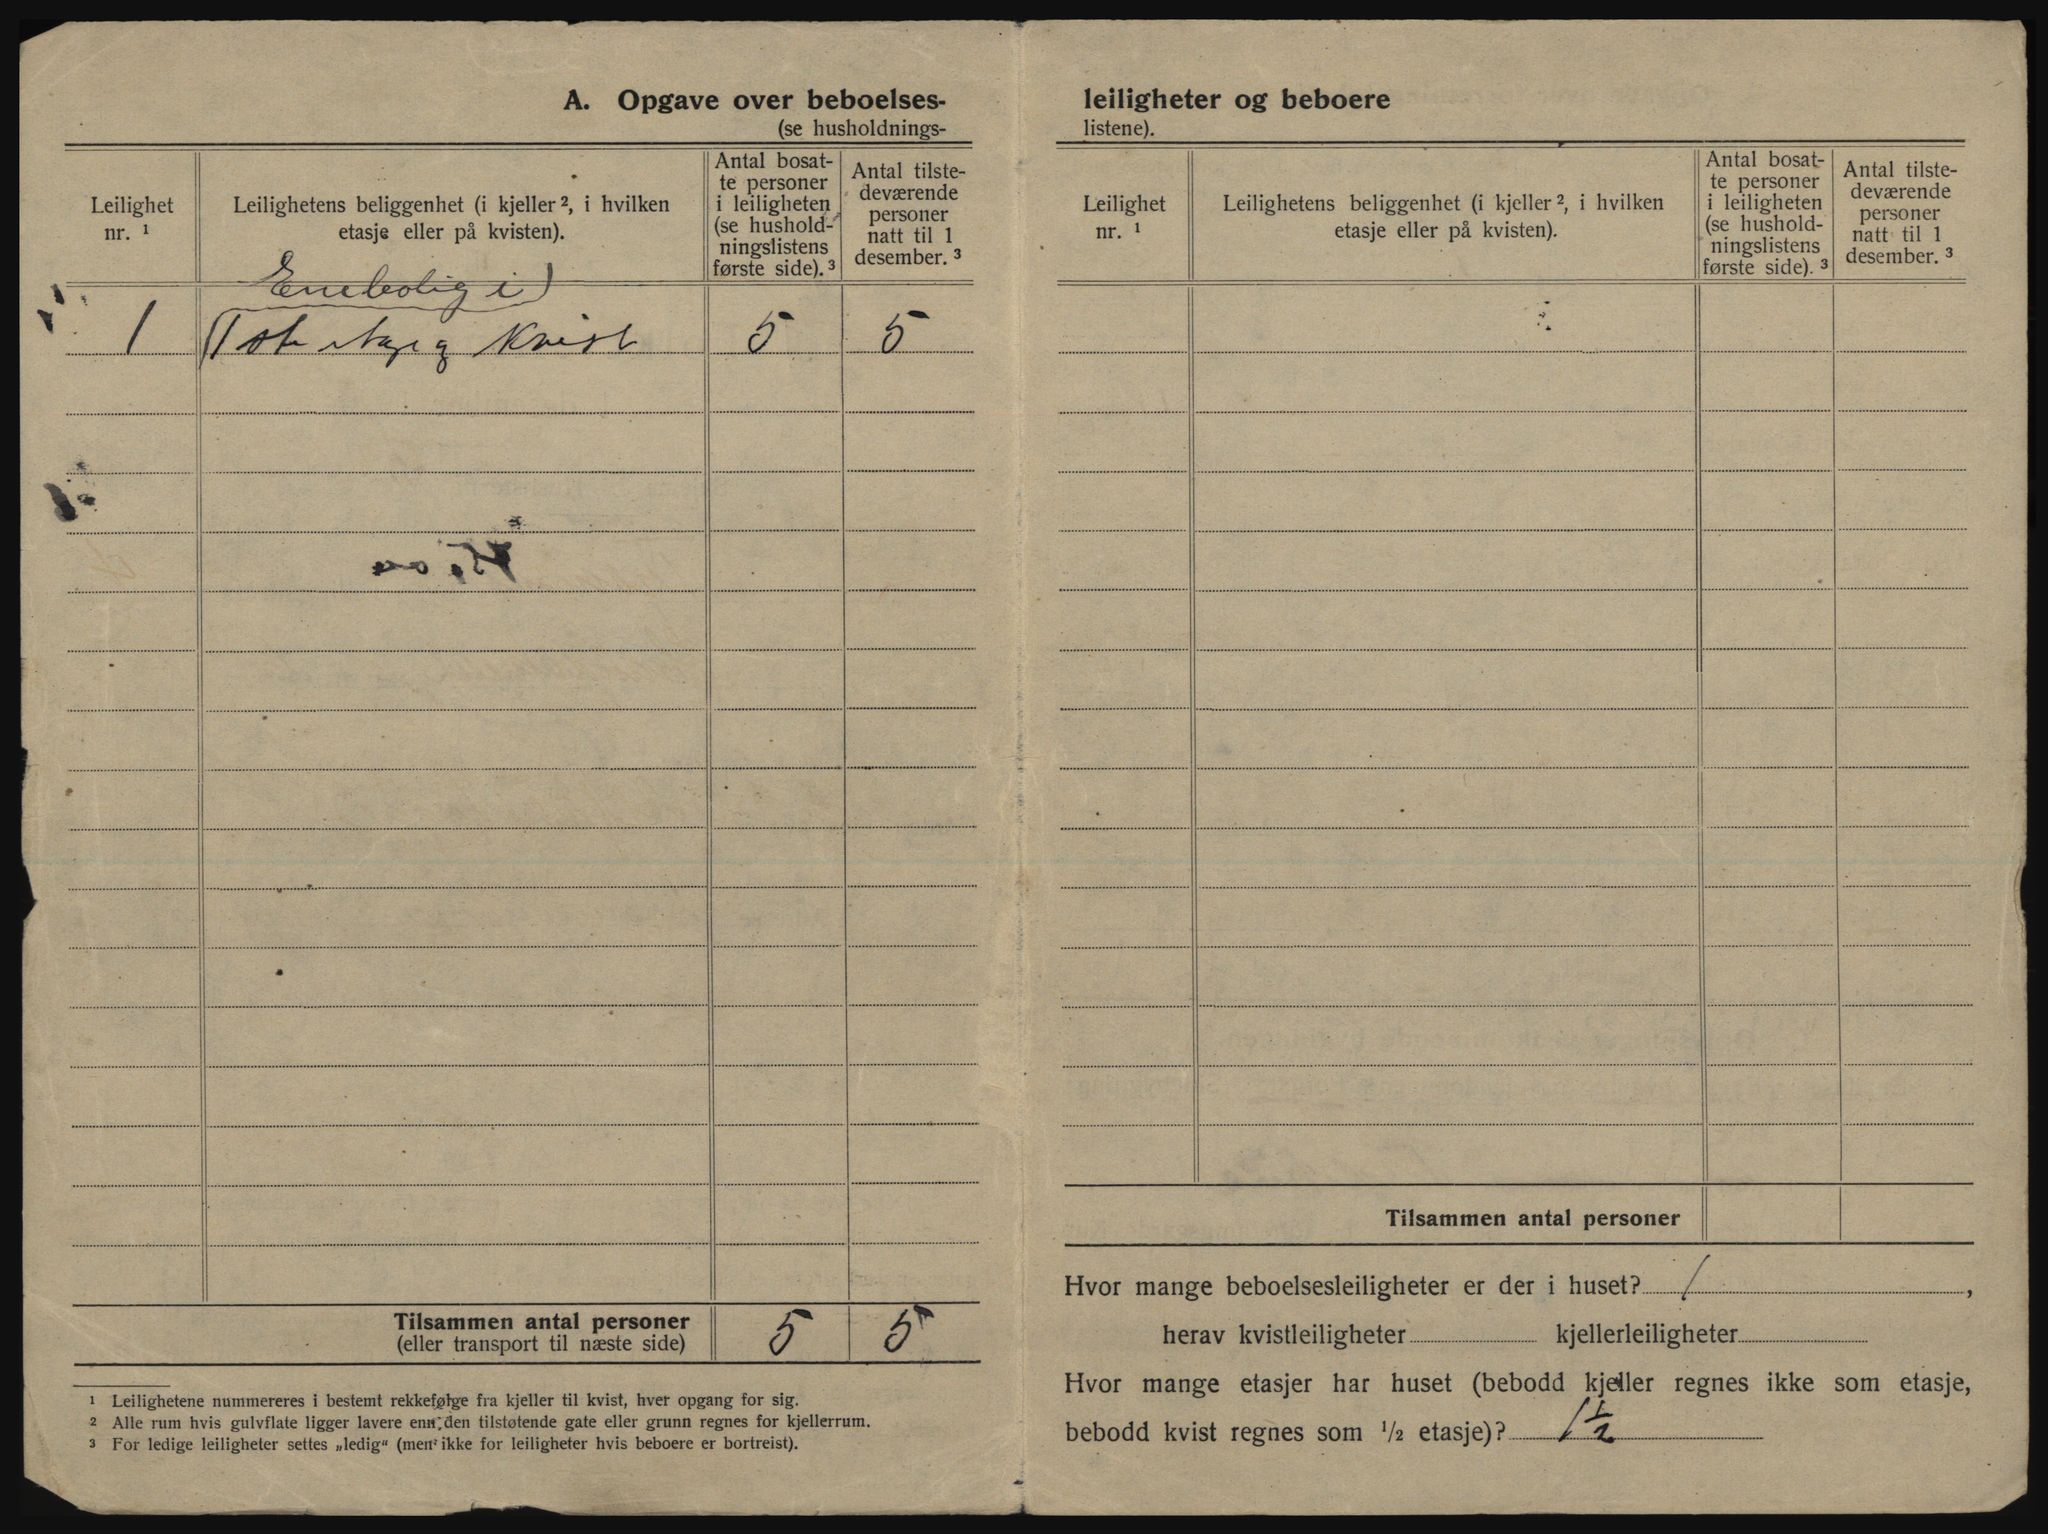 A. Opgave over beboelses-
(se husholdnings-
Leilighet
nr. 1
Leilighetens beliggenhet (i kjeller 2, i hvilken
etasje eller på kvisten).
Antal bosat-
te personer
i leiligheten
(se hushold-
ningslistens
første side). 3
Antal tilste-
deværende
personer
natt til 1
desember. 3
Enebolig i)
1 (1ste etage og Kvist 5 5
Tilsammen antal personer 5 5
(eller transport til næste side)
1 Leilighetene nummereres i bestemt rekkefølge fra kjeller til kvist, hver opgang for sig.
2 Alle rum hvis gulvflate ligger lavere enn den tilstøtende gate eller grunn regnes for kjellerrum.
3 For ledige leiligheter settes „ledig“ (men ikke for leiligheter hvis beboere er bortreist).
leiligheter og beboere
listene).
Leilighet
nr. 1
Leilighetens beliggenhet (i kjeller 2, i hvilken
etasje eller på kvisten).
Antal bosat-
te personer
i leiligheten
(se hushold-
ningslistens
første side). 3
Antal tilste-
deværende
personer
natt til 1
desember. 3
Tilsammen antal personer
Hvor mange beboelsesleiligheter er der i huset? 1,
herav kvistleiligheter kjellerleiligheter
Hvor mange etasjer har huset (bebodd kjeller regnes ikke som etasje,
bebodd kvist regnes som 1/2 etasje)? 1 1/2